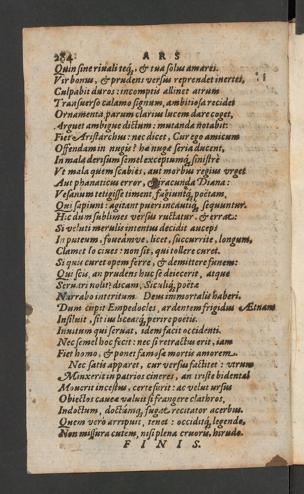 284 ARS
Quin sine riuali teq́, & tua solus amares.
Vir bonus, & prudens versus reprendet inertes,
Culpabit duros: incomptis allinet atrum
Transuerso calamo signum, ambitiosa recidet
Ornamenta: parum claris lucem dare coget,
Arguet ambigue dictum: mutanda notabit:
Fiet Aristarchus: nec dicet, Cur ego amicum
Offendam in nugis? hæ nugæ seria ducent,
In mala derisum semel exceptumq́, sinistrè
Vt mala quem scabies, aut morbus regius vrget
Aut phanaticus error, & iracunda Diana:
Vesanum tetigisse timent, fugiuntq́, poëtam,
Qui sapiunt: agitant pueri incautiq́, sequuntur.
Hic dum sublimes versus ructatur, & errat:
Si veluti merulis intentus decidit auceps
In puteum, foueámve, licet, succurrite, longum,
Clamet Io ciues: non sit, qui tollere curet.
Si quis curet opem ferre, & demittere funem:
Qui scis, an prudens huc se deiecerit, atque
Seruari nolit: dicam, Siculiq́, poëtæ
Narrabo interitum Deus immortalis haberi,
Dum cupit Empedocles, ardentem frigidus Ætnam
Insiluit, sit ius liceatq́, perire poëtis.
Inuitum qui seruat, idem facit occidenti.
Nec semel hoc fecit: nec si retractus erit, iam
Fiet homo, & ponet famosæ mortis amorem.
Nec satis apparet, cur versus factitet: vtrum
Minxerit in patrios cineres, an triste bidental
Mouerit incestus, certe furit: ac velut vrsus
Obiectos caueæ valuit si frangere clathros,
Indoctum, doctúmq́, fugat recitator acerbus.
Quem vero arripuit, tenet: occiditq́, legendo,
Non missura cutem, nisi plena cruoris, hirudo.
FINIS.